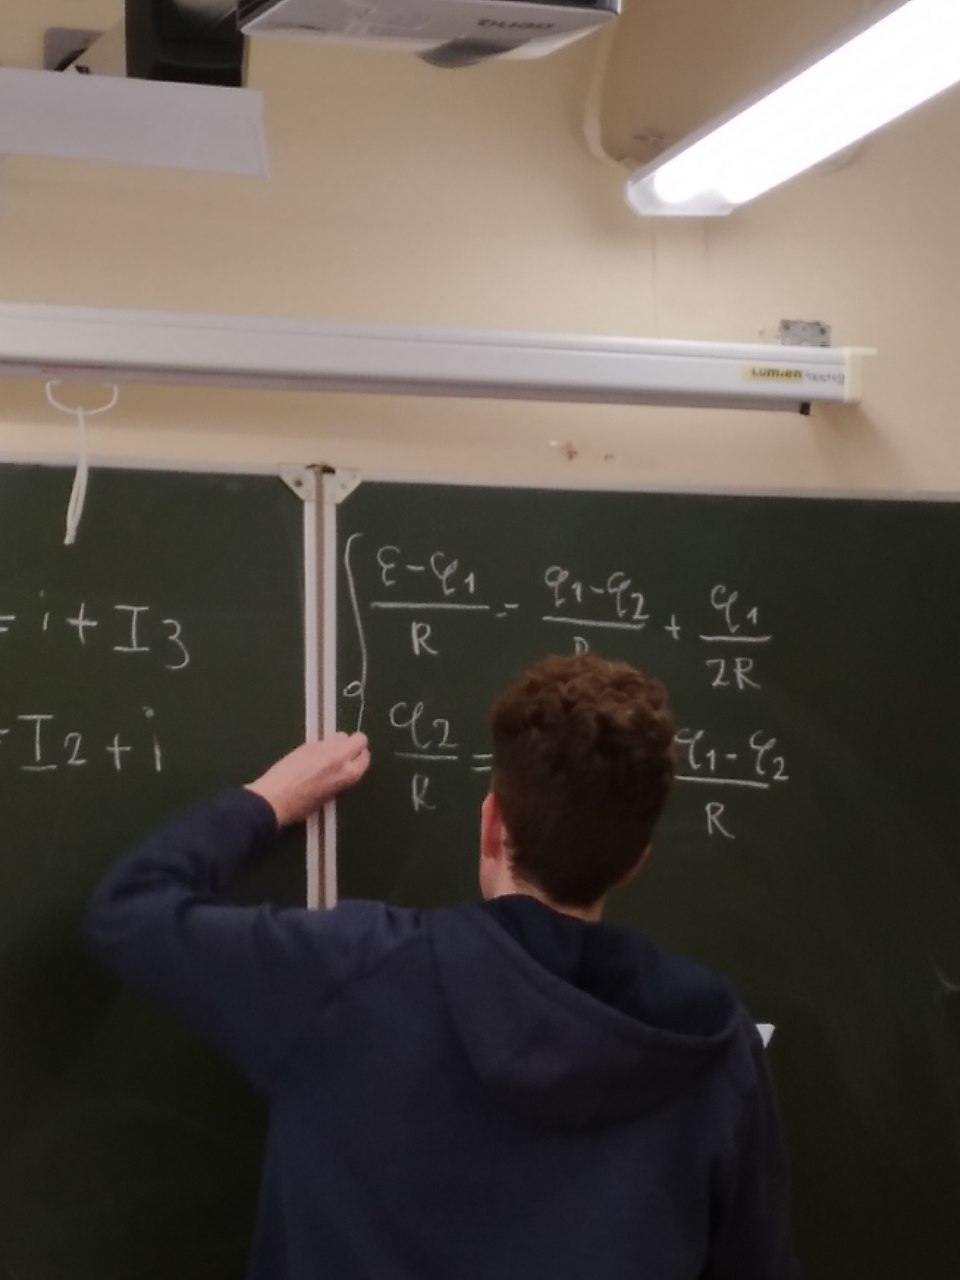 BenQ
Lumien
= i + I3
= I2 + i
(ε-φ1)/R = (φ1-φ2)/R + φ1/2R
φ2/R = (φ1-φ2)/R